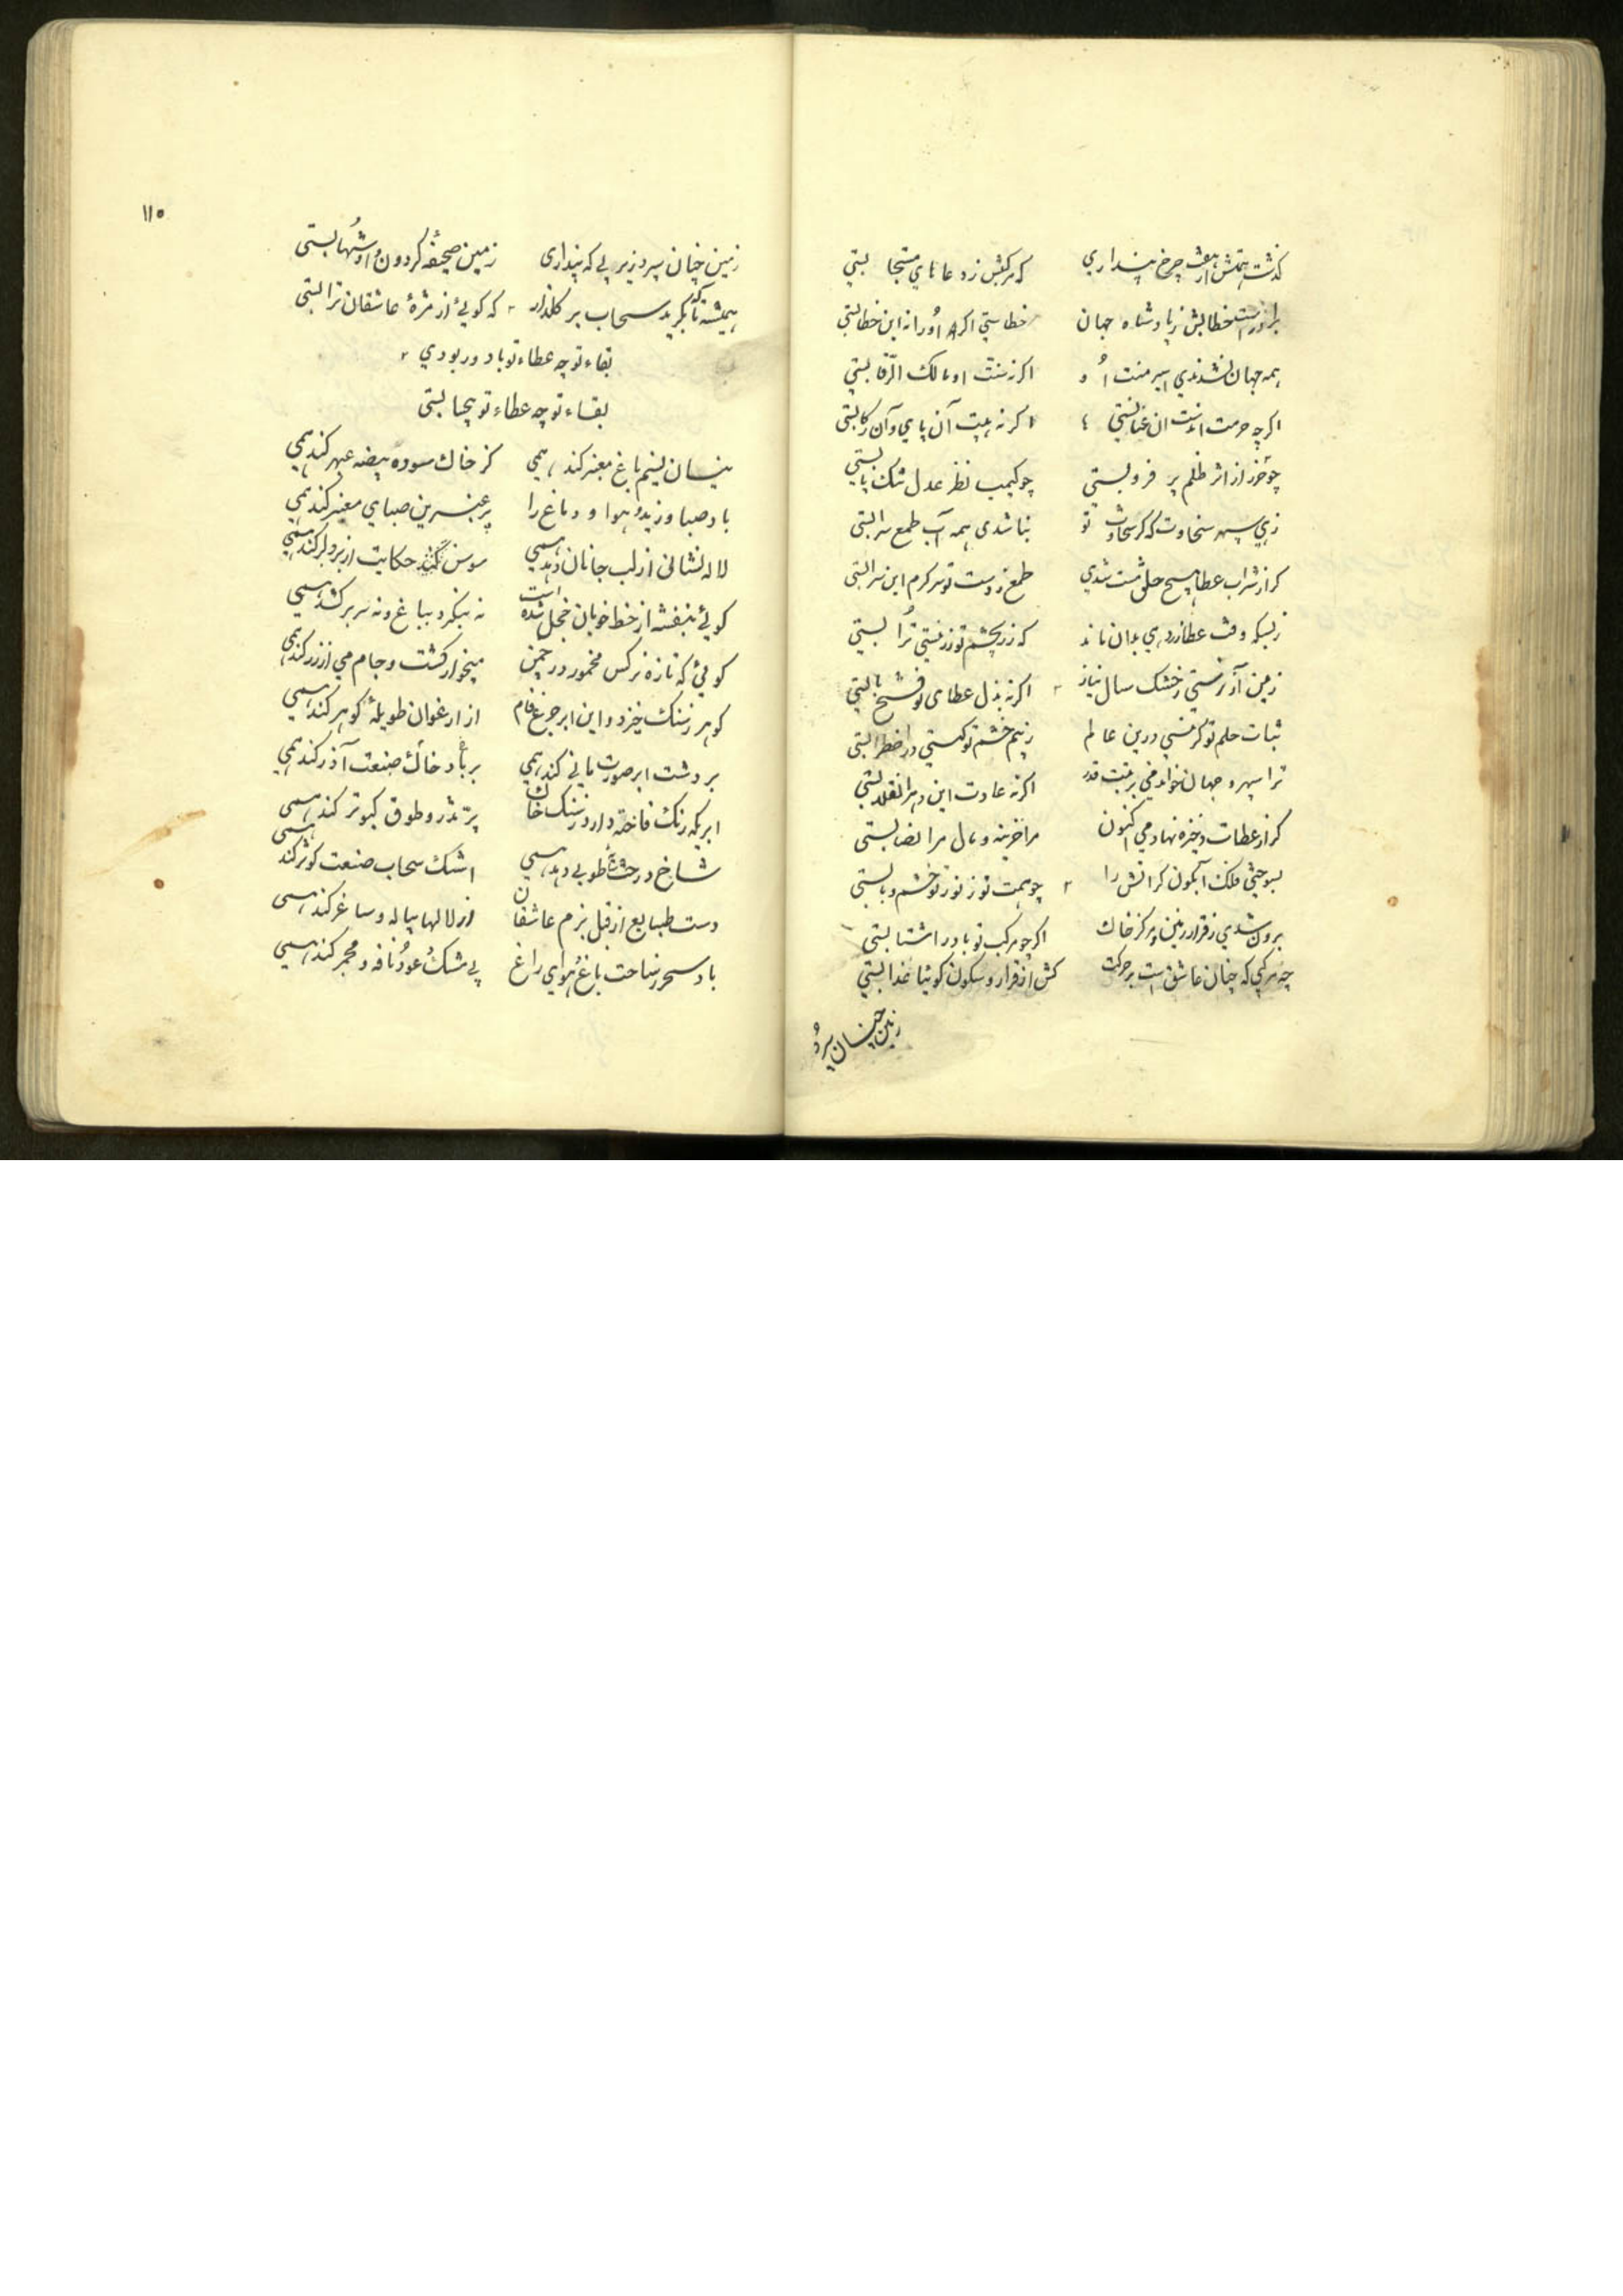 گذشت همتش از هفت چرخ پنداری که مرکبش زدعاهای مستجا بستی
خطابش ز پادشاه جهان خطاستی اکر اورا نه این خطابستی
همه جهان نشدندی اسیر منت او اکر نه منت او مالک الرقابستی
اکرچه حرمت اکر نه هیبت آن پای و آن رکابستی
از اثر ظلم پر فرو بستی چو نظر عدل
زهی سپهر سخاوت که کر سخاوت تو بنا شدی همه آب طمع سرابستی
کر از شراب عطا هیچ خلق مست شدی طمع ز دست تو سر کرم این شرابستی
زبسکه وقت عطا زر دهی بدان ماند که زر بچشم تو زر نیستی ترابستی
زمین خشک سال نیاز اکر نه بذل عطای تو فتح بابستی
ثبات حلم تو کر نیستی درین عالم ز بیم خشم تو کیستی در اضطرابستی
ترا سپهر و جهان خواندمی برتبت قدر اکر نه عادت این هر دو انقلابستی
کر از عطات ذخیره نهادمی اکنون مرا خزینه و مال مرا نصابستی
بسوختی فلک آبکون کرانش را چو همت تو ز نور تو خشم و تابستی
برون شدی ز قرار زمین و مرکز خاک اکر چو مرکب تو باد را شتابستی
چه مرکبی که چنان عاشق است بر حرکت کش از قرار و سکون کوئیا عذابستی
زمین چنان سپرد
۱۱۵
زمین چنان سپرد زیر پی که پنداری زمین صحیفه کردون و او شهابستی
همیشه تا که بکرید سحاب بر کلزار که کوئی از مژهٔ عاشقان ترابستی
بقاء تو چه عطاء تو باد و ربودی
بقاء تو چه عطاء تو بیحسابستی
نیسان نسیم باغ معنبر کند همی کز خاک سوده بیضه عبهر کند همی
باد صبا وزید و هوا و دماغ را پر عنبرین صبای معنبر کند همی
لاله نشانی از لب جانان دهد همی سوسن نکند حکایت از بر دلبر کند همی
کوئی بنفشه از خط خوبان خجل شده است نه بنکرد بباغ و نه سر بر کشد همی
کوئی که تازه نرکس مخمور در چمن میخواره کشت و جام می از زر کند همی
کوهر ز سنک خیزد و این ابر چرغ فام از ارغوان طویلهٔ کوهر کند همی
بر دشت ابر صورت مانی کند همی بر باغ باد خاک صنعت آذر کند همی
ابریکه رنک فاخته دارد ز سنک خاک پر تذرو و طوق کبوتر کند همی
شاخ درخت باغ طوبی دهد همی اشک سحاب صنعت کوثر کند همی
دست طبایع از قبل بزم عاشقان از لالها پیاله و ساغر کند همی
باد سحر ز ساحت باغ و هوای راغ بی مشک و عود نافه و مجمر کند همی